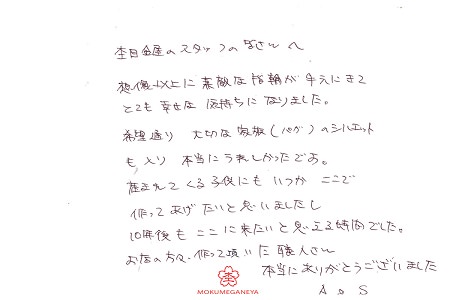 杢目金屋のスタッフのみなさんへ
想像以上に素敵な指輪が手元にきて
とても幸せな気持ちになりました。
希望通り 大切な家族(パグ)のシルエット
も入り 本当にうれしかったです。
産まれてくる子供にもいつかここで
作ってあげたいと思いましたし
10年後もここに来たいと思える時間でした。
お店の方々、作って頂いた職人さん
本当にありがとうございました
A & S
MOKUMEGANEYA